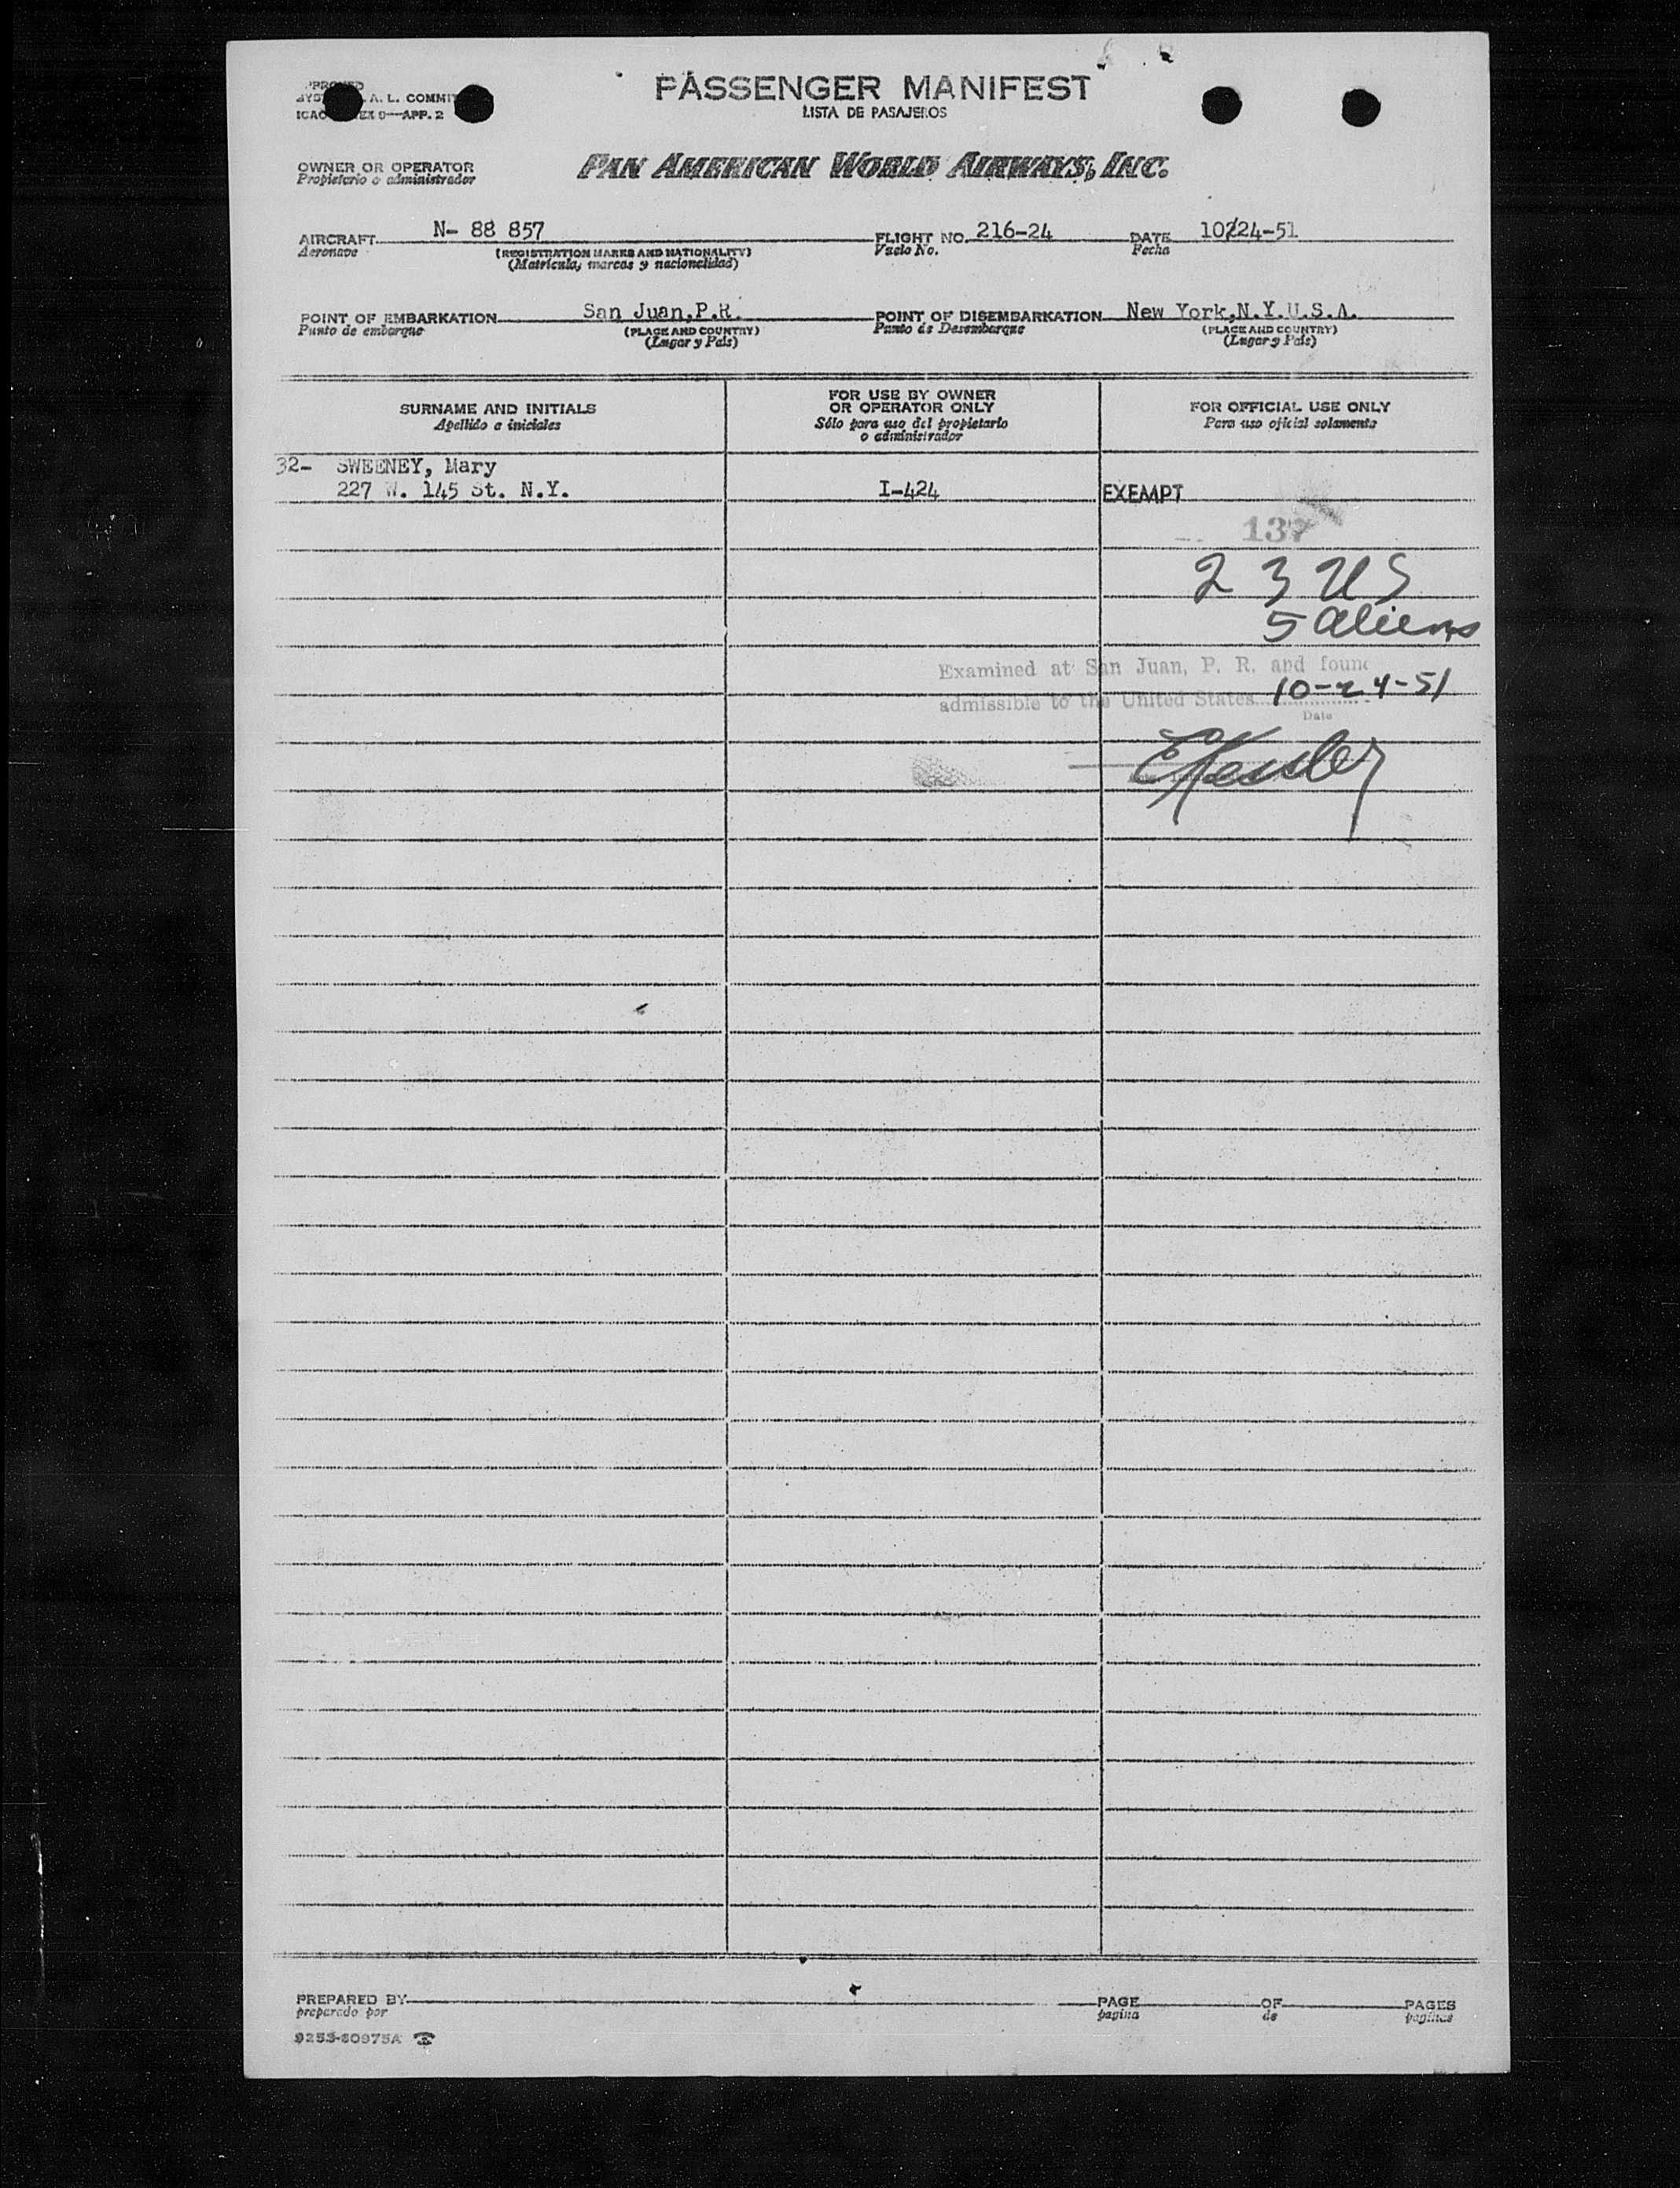 PASSENGER MANIFEST
LISTA DE PASAJEROS
A. L. COMMIT
ICAO EX 9—APP. 2
OWNER OR OPERATOR
Propietario o administrador
PAN AMERICAN WORLD AIRWAYS, INC.
AIRCRAFT N- 88 857 FLIGHT NO. 216-24 DATE 10/24-51
Aeronave (REGISTRATION MARKS AND NATIONALITY) Vuelo No. Fecha
(Matrícula, marcas y nacionalidad)
POINT OF EMBARKATION San Juan,P.R. POINT OF DISEMBARKATION New York,N.Y.U.S.A.
Punto de embarque (PLACE AND COUNTRY) Punto de Desembarque (PLACE AND COUNTRY)
(Lugar y País) (Lugar y País)
SURNAME AND INITIALS
Apellido e iniciales
FOR USE BY OWNER
OR OPERATOR ONLY
Sólo para uso del propietario
o administrador
FOR OFFICIAL USE ONLY
Para uso oficial solamente
32- SWEENEY, Mary
227 W. 145 St. N.Y. I-424 EXEMPT
137
23 US
5 aliens
Examined at San Juan, P. R. and found
admissible to the United States 10-24-51
Date
EKessler
PREPARED BY PAGE OF PAGES
preparado por pagina de paginas
9253-60975A